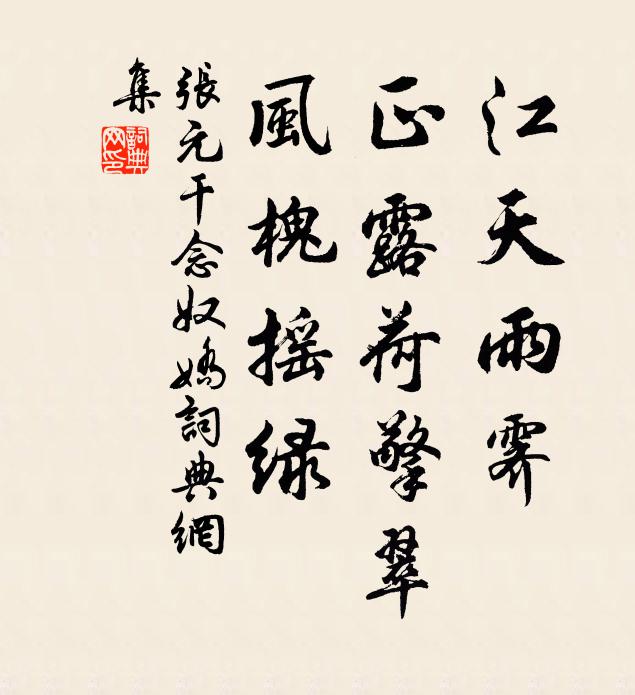 江天雨霽
正露荷擎翠
風槐摇緑
張元干念奴嬌詞典網
集
詞典
网印